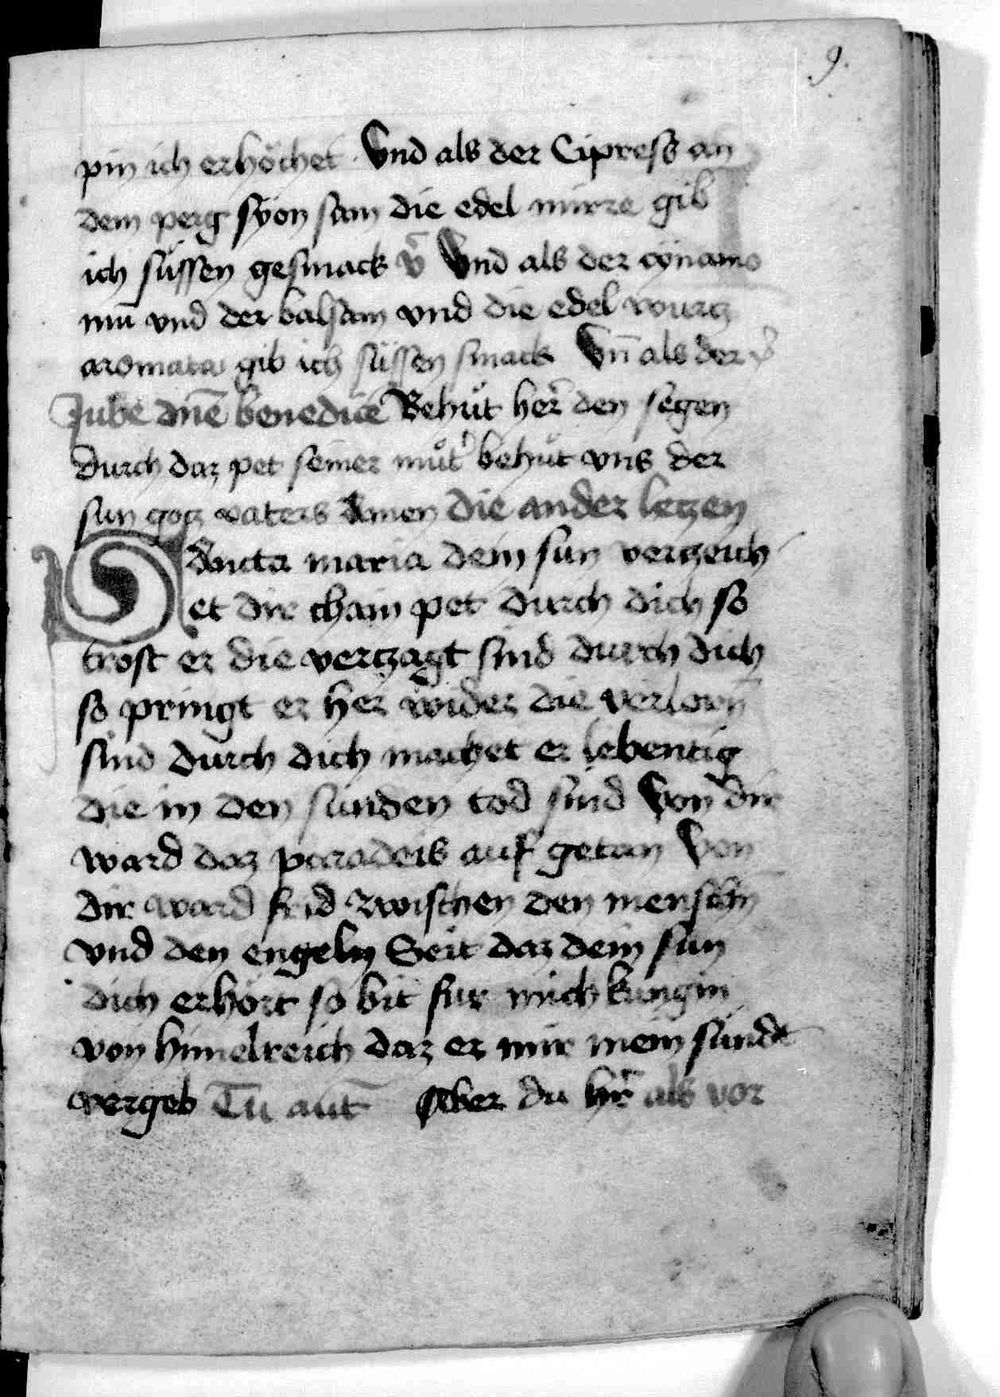 9.
pin ich erhöchet Vnd als der Cipress an
dem perg syon sam die edel mirre gib
ich süssen gesmack v̄ Vnd als der cynamo
mū vnd der balsam vnd die edel wurcz
aromata gib ich süssen smack Vn̄ als der
Jube dnē benedicē Behüt her̄ den segen
durch daz pet seiner müt' behüt vns der
sun gotz vaters Amen die ander leczen
Sancta maria dein sun verczeich
et dir chain pet durch dich so
tröst er die verczagt sind durch dich
so pringt er her wider die verlorn̄
sind durch dich machet er lebentig
die in den sünden tod sind Von dir
ward daz paradeis auf getan Von
dir ward frid zwischen den menschn̄
vnd den engeln Seit daz dein sun
dich erhört so bit für mich küngin
von himelreich daz er mir mein sünde
vergeb Tu aut̄ Aber du hr̄ als vor